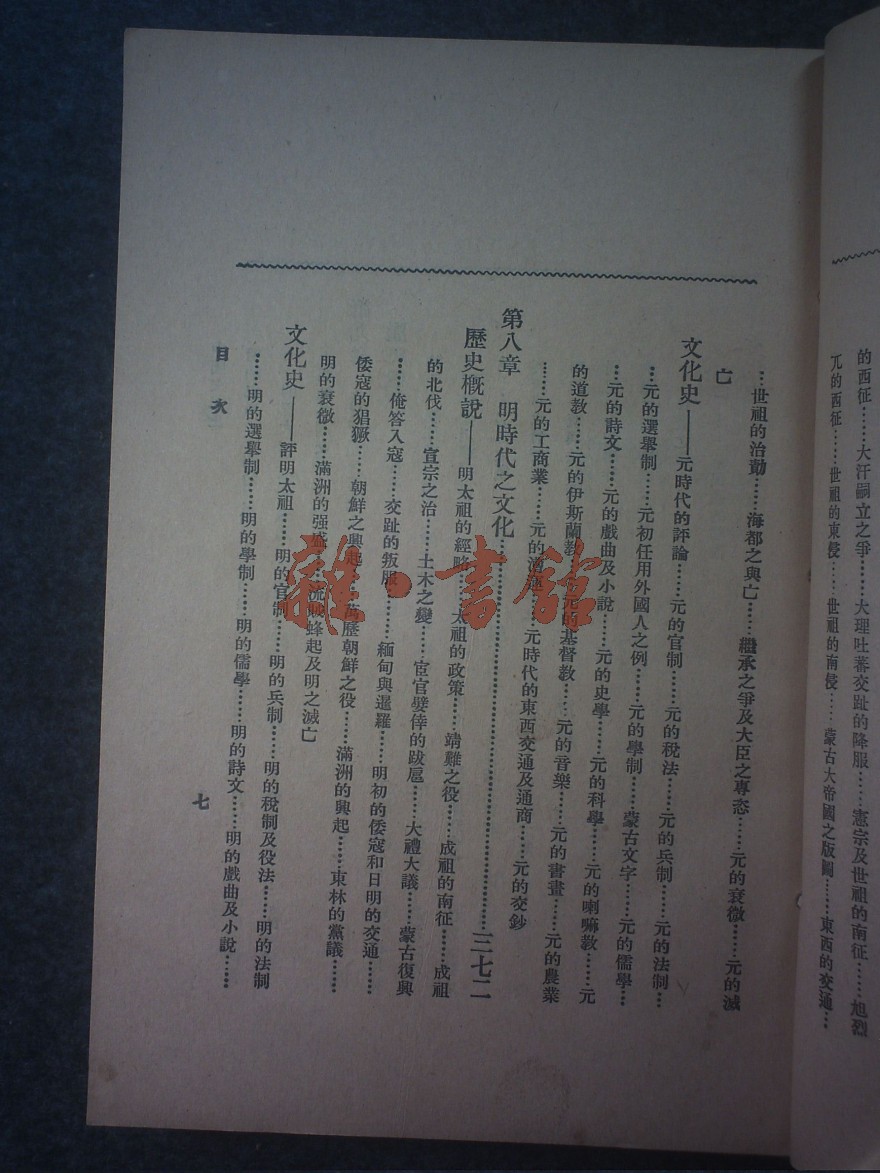 的西征……大汗嗣立之爭……大理吐蕃交趾的降服……憲宗及世祖的南征……旭烈
兀的西征……世祖的東侵……世祖的南侵……蒙古大帝國之版圖……東西的交通…
…世祖的治動……海都之與亡……繼承之爭及大臣之專恣……元的衰微……元的滅
亡
文化史——元時代的評論……元的官制……元的稅法……元的兵制……元的法制…
…元的選舉制……元初任用外國人之例……元的學制……蒙古文字……元的儒學…
…元的詩文……元的戲曲及小說……元的史學……元的科學……元的喇嘛教……元
的道教……元的伊斯蘭教……元的基督教……元的音樂……元的書畫……元的農業
……元的工商業……元的漕運……元時代的東西交通及通商……元的交鈔
第八章 明時代之文化……三七二
歷史概說——明太祖的經略……太祖的政策……靖難之役……成祖的南征……成祖
的北伐……宣宗之治……土木之變……宦官嬖倖的跋扈……大禮大議……蒙古復興
……俺答入寇……交趾的叛服……緬甸與暹羅……明初的倭寇和日明的交通……
倭寇的猖獗……朝鮮之興起……萬歷朝鮮之役……滿洲的興起……東林的黨議……
明的衰微……滿洲的强盛……流賊蜂起及明之滅亡
文化史——評明太祖……明的官制……明的兵制……明的稅制及役法……明的法制
……明的選舉制……明的學制……明的儒學……明的詩文……明的戲曲及小說……
目次
七
雜·書館